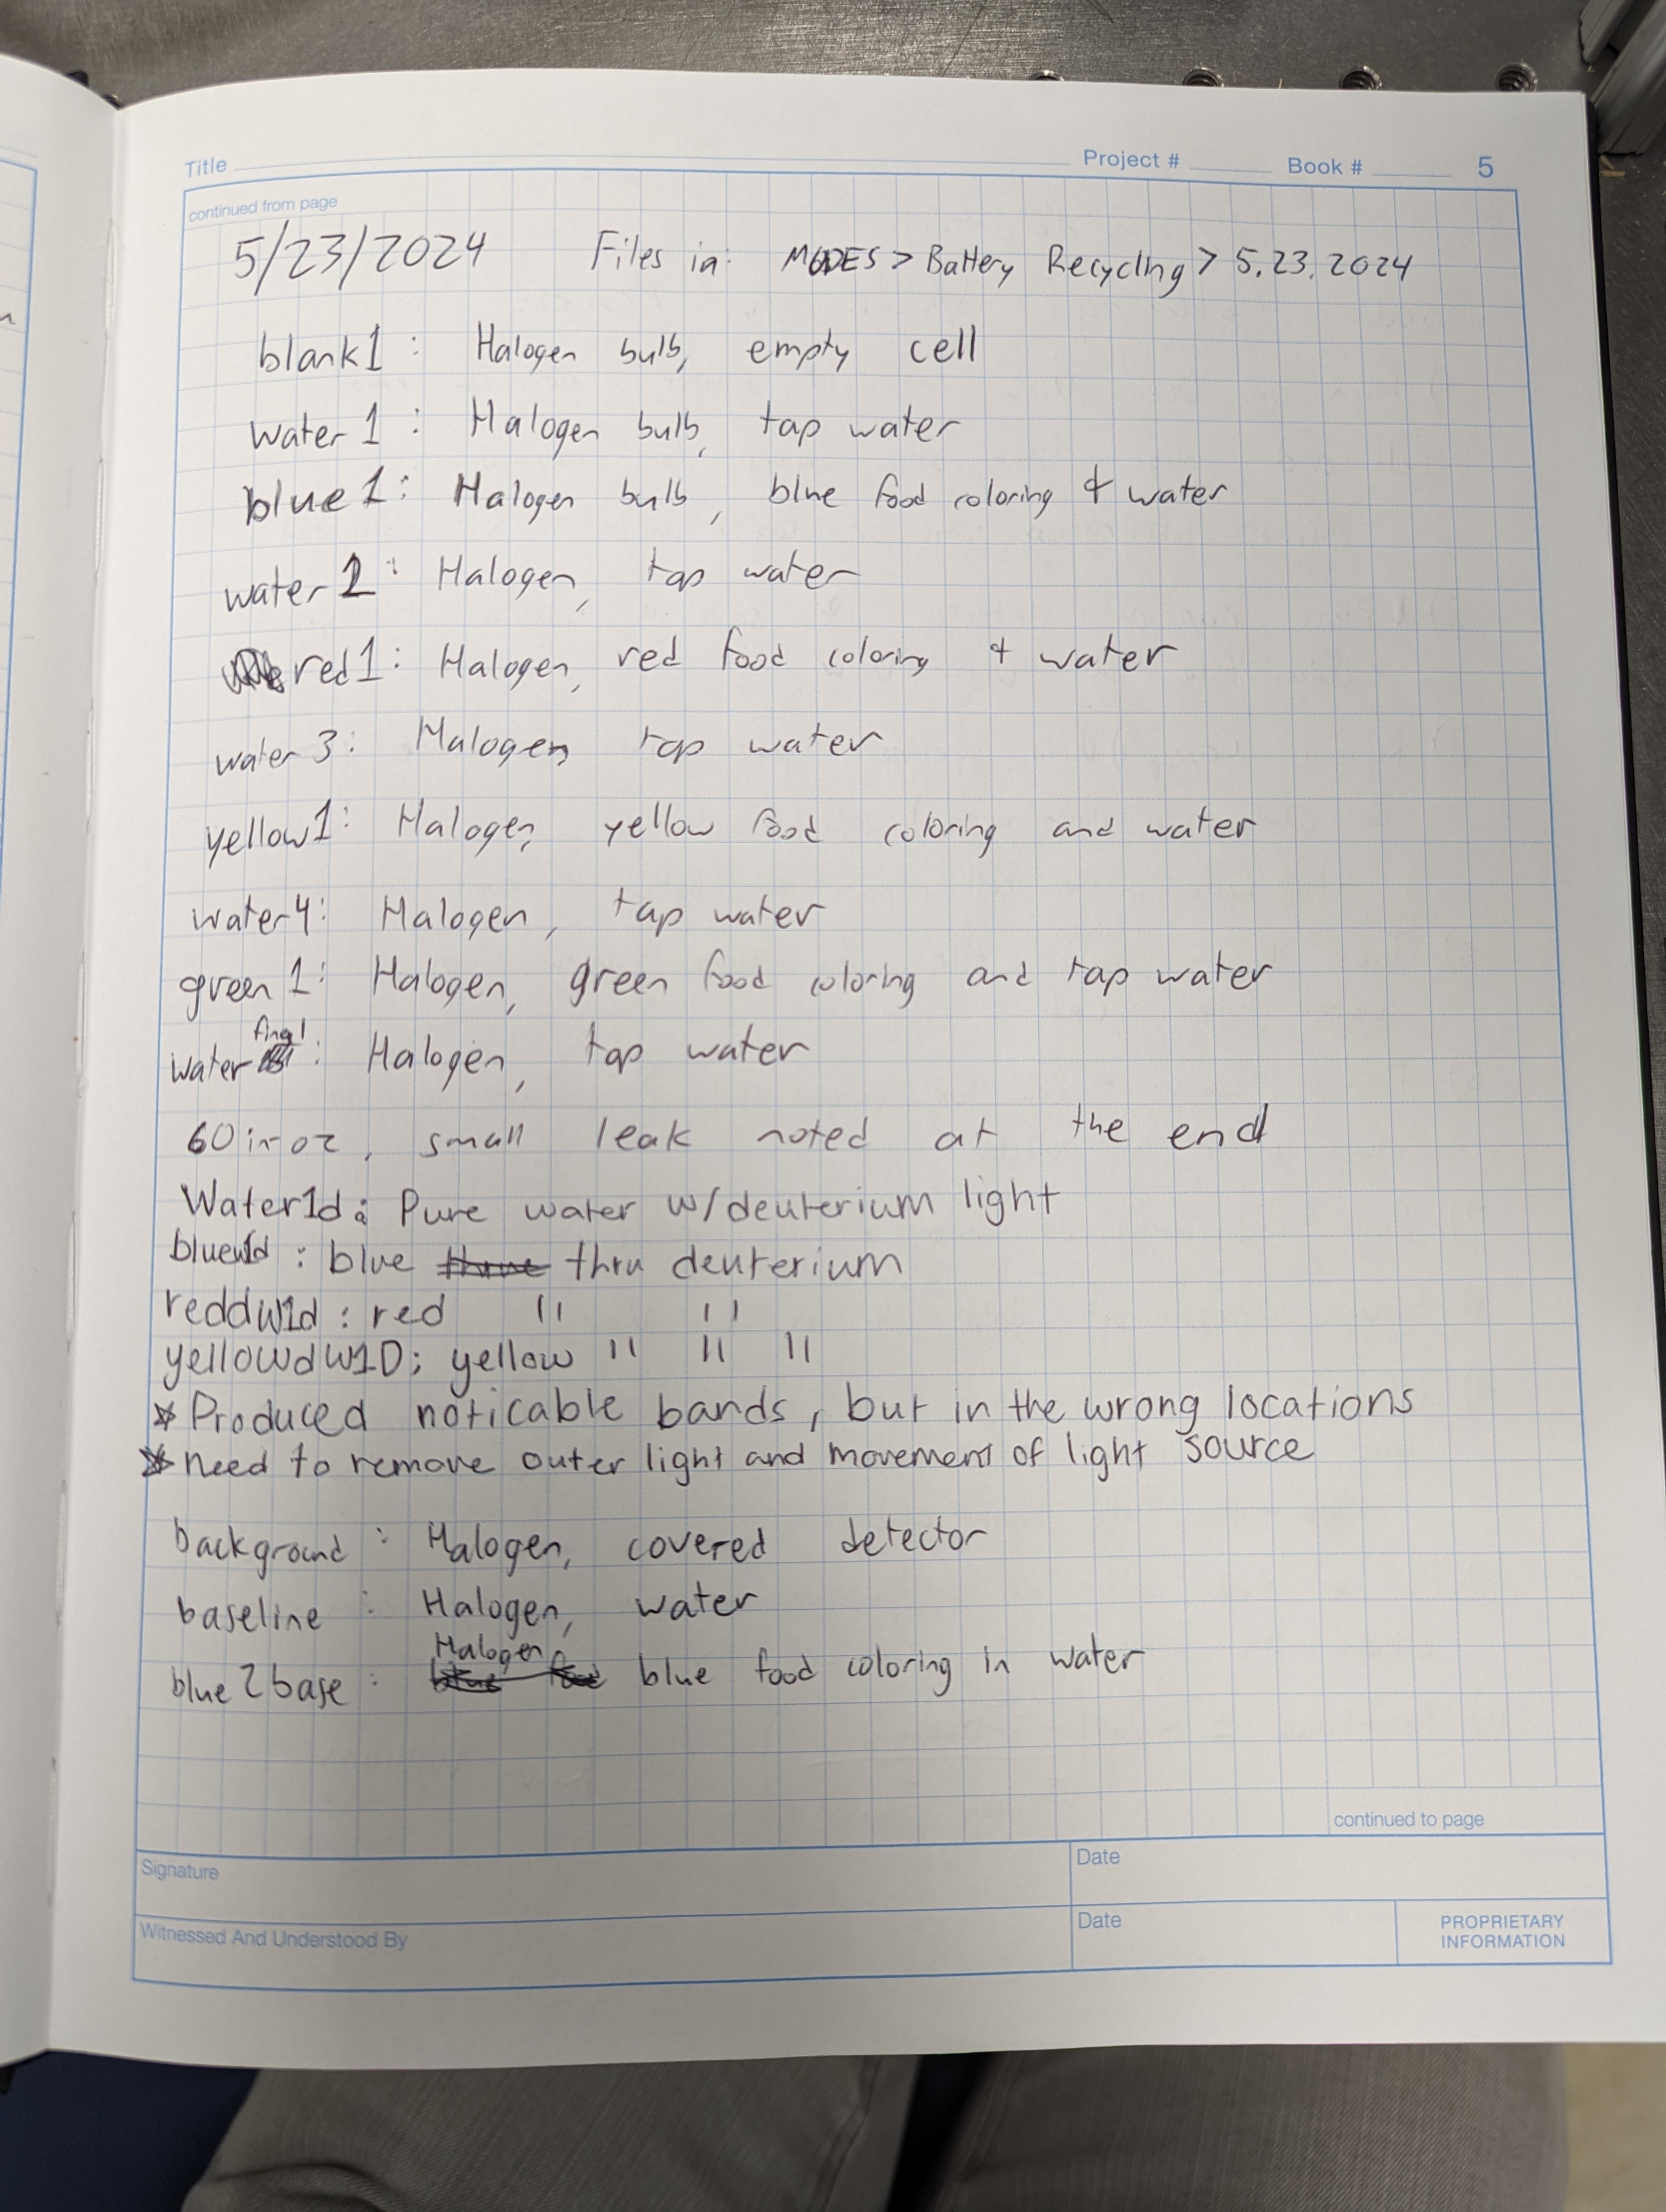 Title Project # Book # 5
continued from page
5/23/2024 Files in: MODES > Battery Recycling > 5.23.2024
blank1: Halogen bulb, empty cell
Water 1: Halogen bulb, tap water
blue 1: Halogen bulb, blue food coloring & water
water 2: Halogen, tap water
red1: Halogen, red food coloring & water
water 3: Halogen, tap water
yellow1: Halogen, yellow food coloring and water
water4: Halogen, tap water
green 1: Halogen, green food coloring and tap water
final
water: Halogen, tap water
60 in-oz, small leak noted at the end
Water1d: Pure water w/deuterium light
: blue thru deuterium
reddw1d: red " "
yellowdw1D: yellow " " "
* Produced noticable bands, but in the wrong locations
* need to remove outer light and movement of light source
background: Halogen, covered detector
baseline: Halogen, water
Halogen
blue2base: blue food coloring in water
continued to page
Signature Date
Witnessed And Understood By Date PROPRIETARY INFORMATION